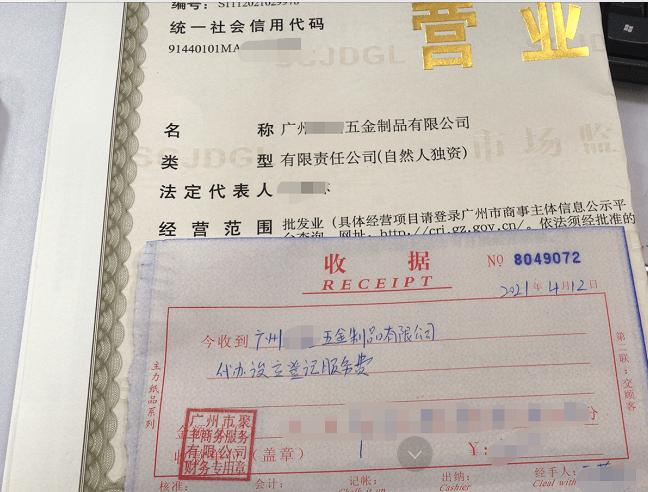 编号: S1112021029978
统一社会信用代码
91440101MA
营业
SCJDGL
名 称 广州 五金制品有限公司
类 型 有限责任公司(自然人独资)
市场监
法定代表人
经营范围 批发业（具体经营项目请登录广州市商事主体信息公示平
台查询，网址：http://cri.gz.gov.cn/。依法须经批准的
收据 No 8049072
RECEIPT
2021年4月12日
今收到 广州 五金制品有限公司
代办设立登记服务费
主力纸品系列
第二联：交顾客
金额
分
广州市聚
丰商务服务
有限公司
财务专用章
（盖章）
¥:
核准: 会计: 记帐: 出纳: 经手人:
Chalk it up Cashier Cleal with